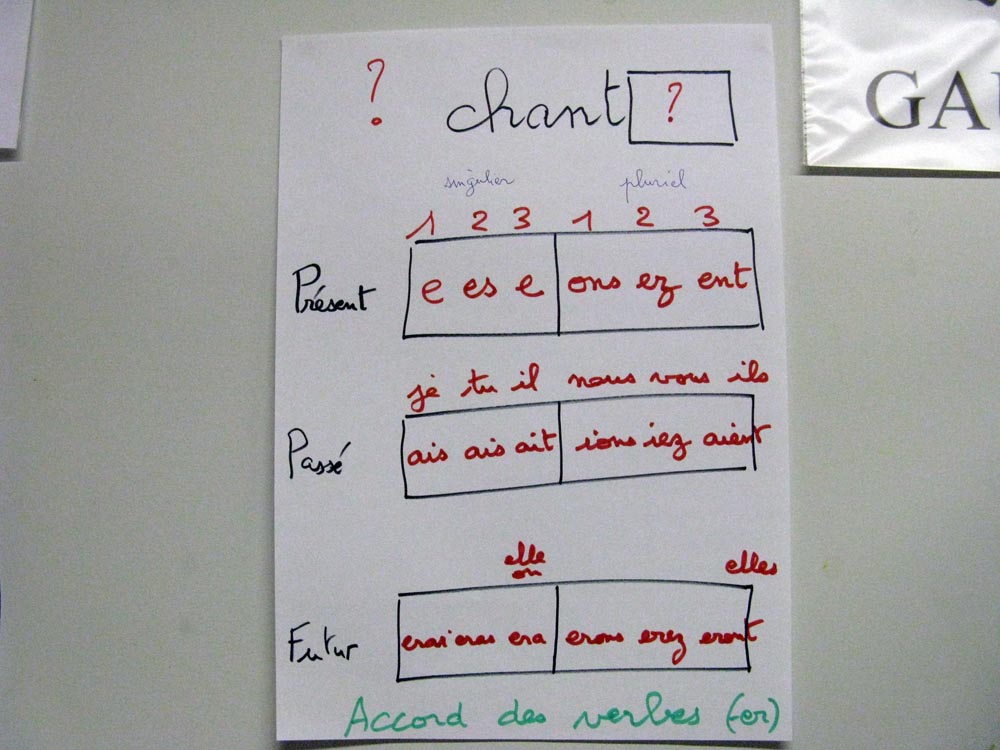 GAU
? chant ?
singulier pluriel
1 2 3 1 2 3
Présent e es e ons ez ent
je tu il nous vous ils
Passé ais ais ait ions iez aient
elle elles
on
Futur erai eras era erons erez eront
Accord des verbes (-er)